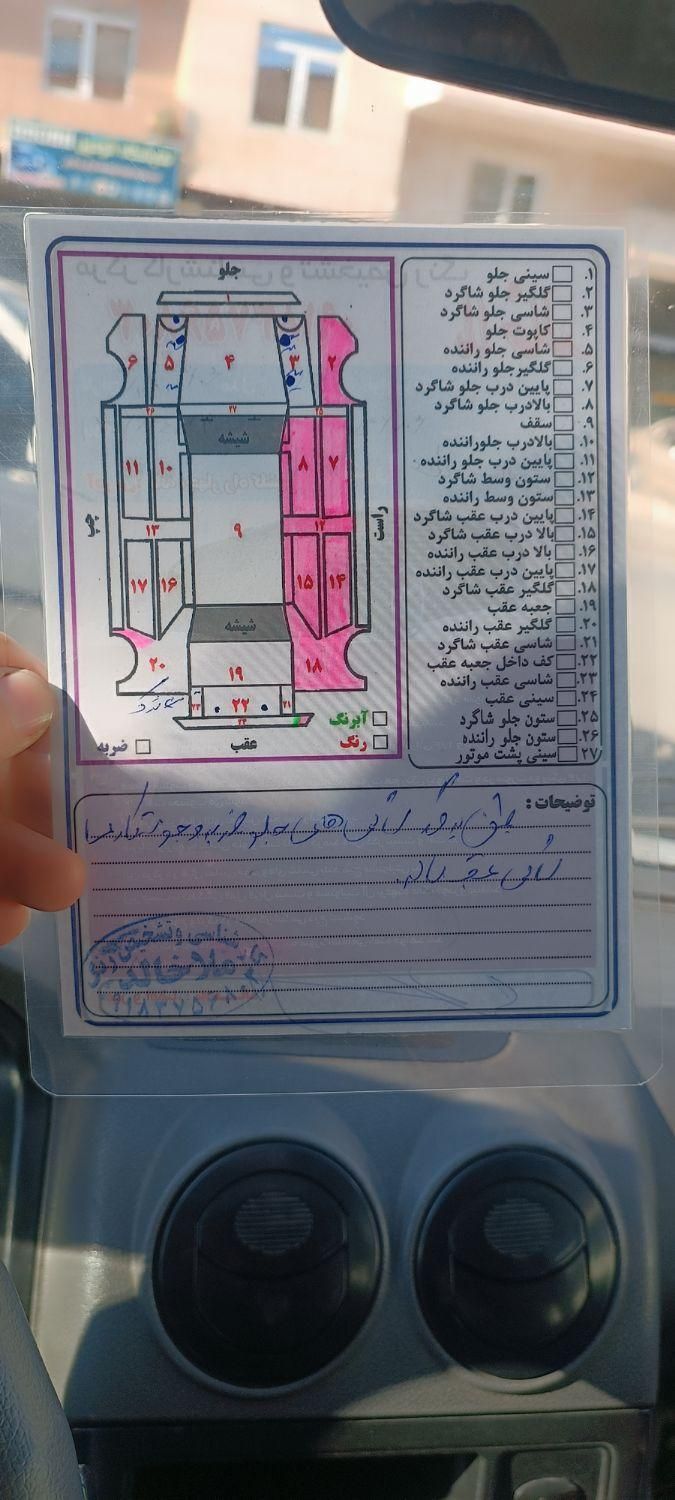 جلو
۱
۶
۵
۴
۳
۲
۲۶
۲۷
۲۵
شیشه
۱۱
۱۰
۸
۷
چپ
راست
۱۳
۹
۱۲
۱۷
۱۶
۱۵
۱۴
شیشه
۲۰
۱۹
۱۸
۲۳
۲۲
۲۱
۲۴
آبرنگ
ضربه
عقب
رنگ
۱. سینی جلو
۲. گلگیر جلو شاگرد
۳. شاسی جلو شاگرد
۴. کاپوت جلو
۵. شاسی جلو راننده
۶. گلگیرجلو راننده
۷. پایین درب جلو شاگرد
۸. بالادرب جلو شاگرد
۹. سقف
۱۰. بالادرب جلوراننده
۱۱. پایین درب جلو راننده
۱۲. ستون وسط شاگرد
۱۳. ستون وسط راننده
۱۴. پایین درب عقب شاگرد
۱۵. بالا درب عقب شاگرد
۱۶. بالا درب عقب راننده
۱۷. پایین درب عقب راننده
۱۸. گلگیر عقب شاگرد
۱۹. جعبه عقب
۲۰. گلگیر عقب راننده
۲۱. شاسی عقب شاگرد
۲۲. کف داخل جعبه عقب
۲۳. شاسی عقب راننده
۲۴. سینی عقب
۲۵. ستون جلو شاگرد
۲۶. ستون جلو راننده
۲۷. سینی پشت موتور
توضیحات :
شناسی و تشخیص رنگ